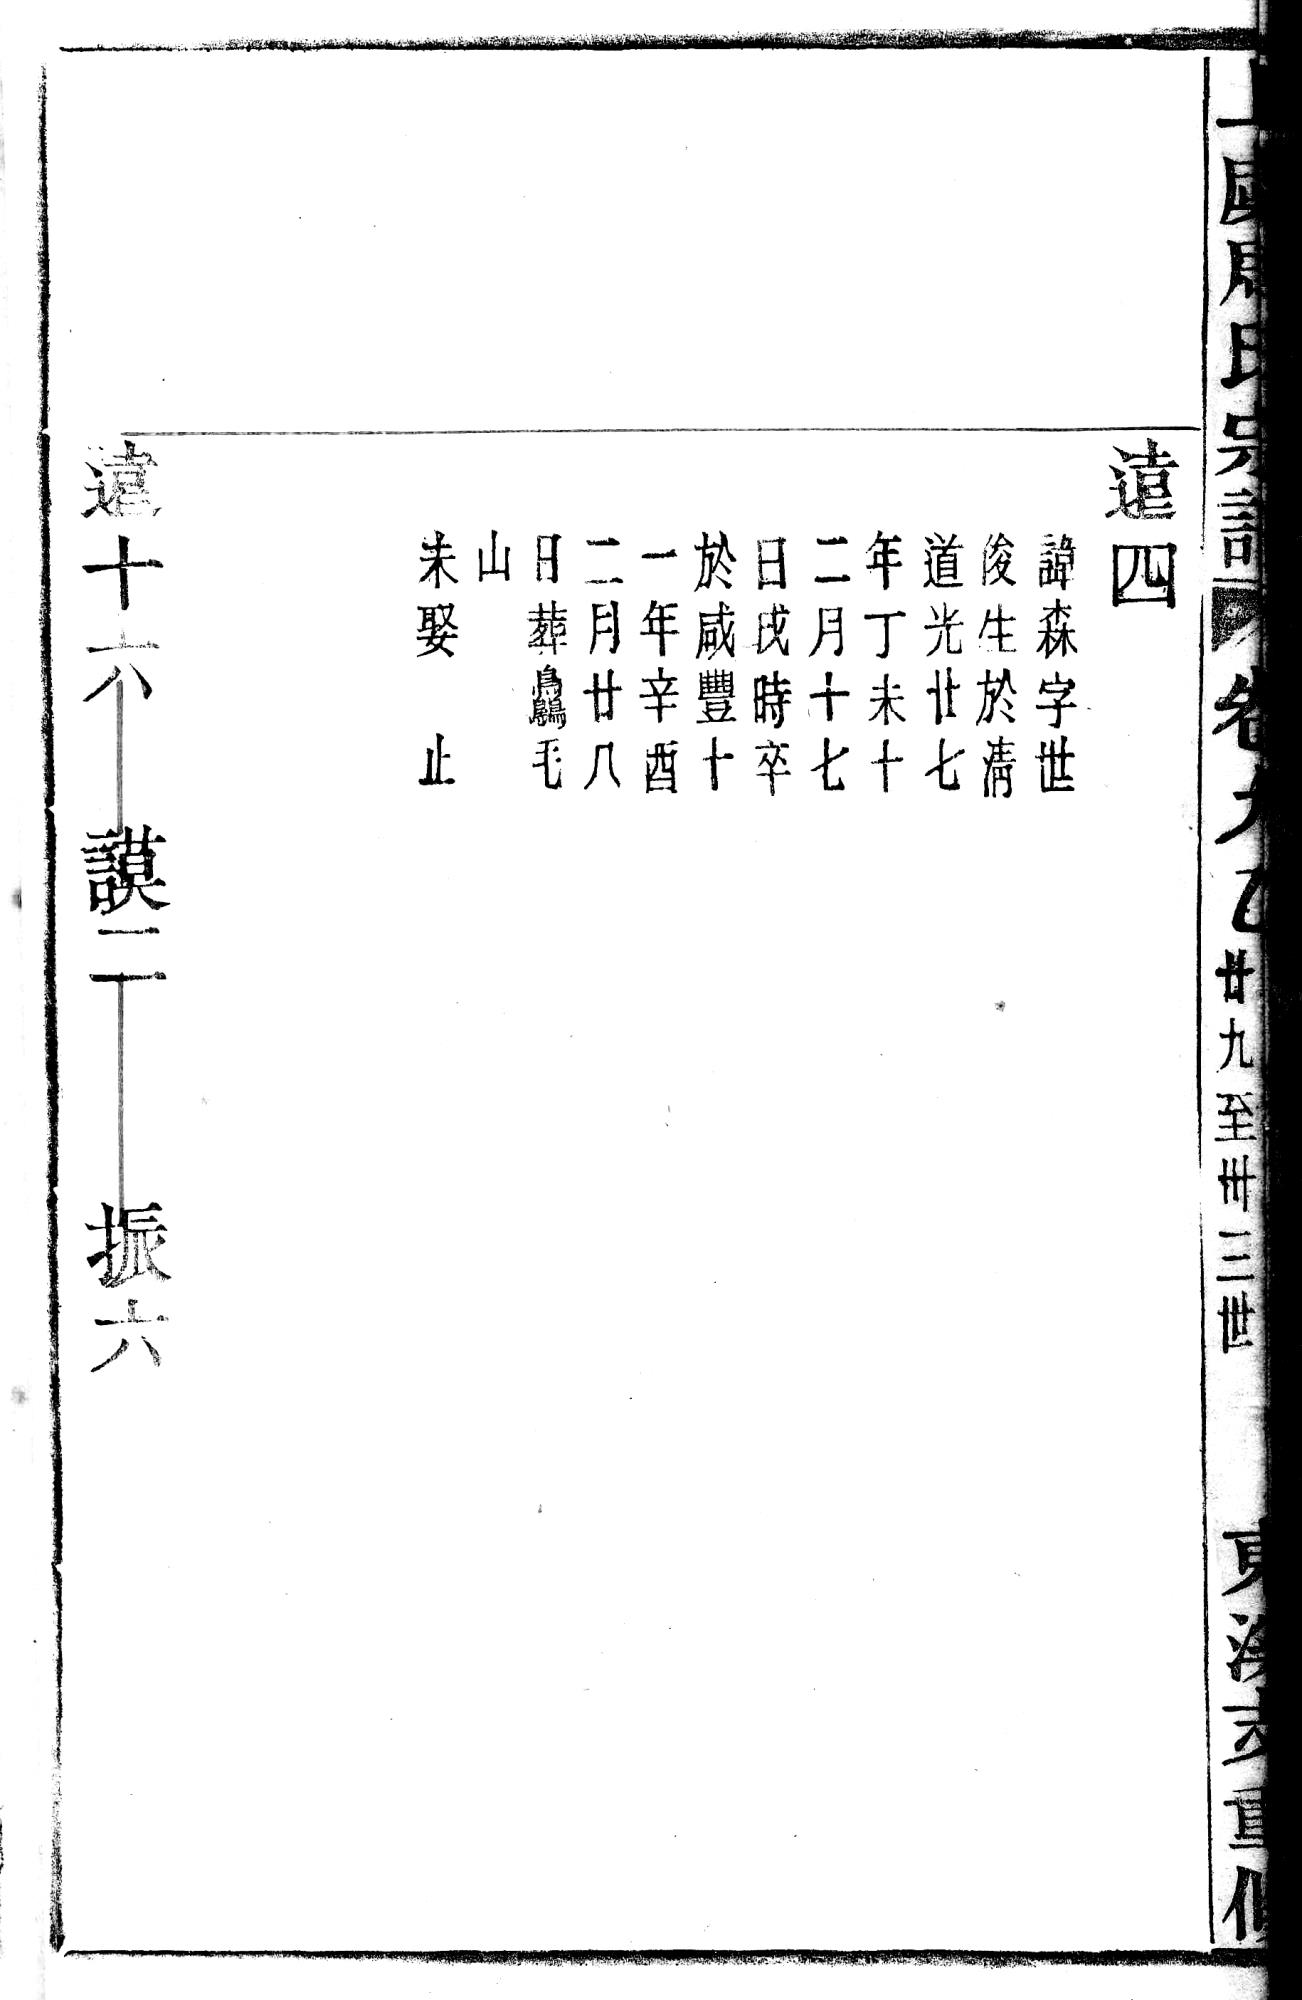 氏宗譜
卷九乙
廿九至卅三世
重修
遠四
諱森字世
俊生於清
道光廿七
年丁未十
二月十七
日戌時卒
於咸豐十
一年辛酉
二月廿八
日葬毛
山
未娶 止
遠十六
謨二
振六